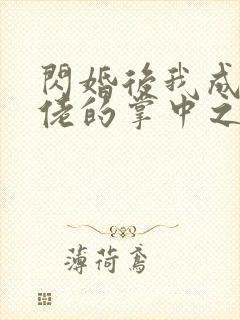 閃婚後我成
佬的掌中之
薄荷鳶